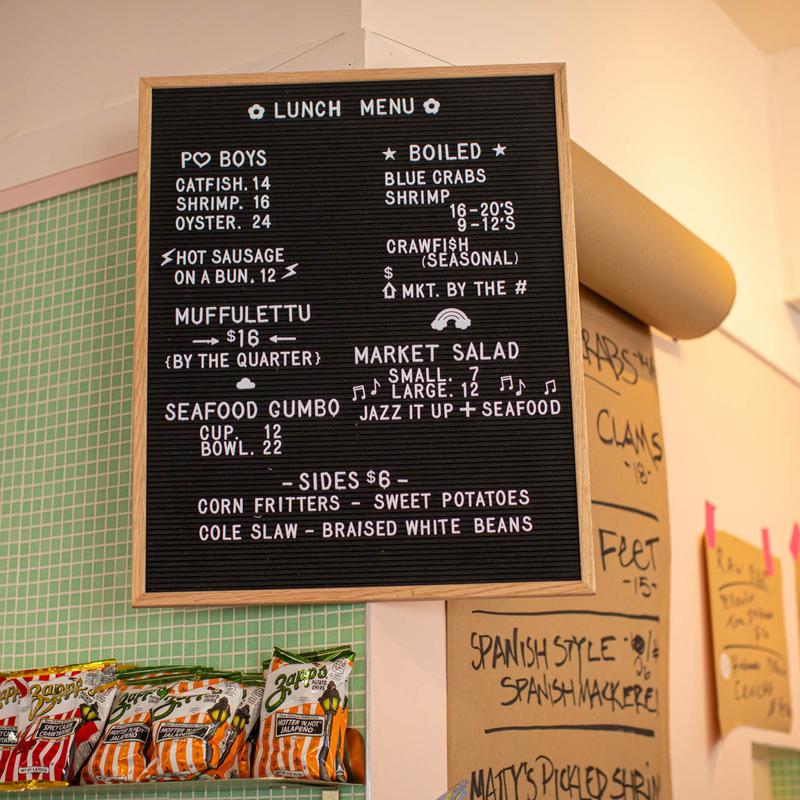 LUNCH MENU
PO BOYS
CATFISH. 14
SHRIMP. 16
OYSTER. 24
HOT SAUSAGE
ON A BUN. 12
MUFFULETTU
→ $16 ←
{BY THE QUARTER}
SEAFOOD GUMBO
CUP. 12
BOWL. 22
★ BOILED ★
BLUE CRABS
SHRIMP
16-20'S
9-12'S
CRAWFI$H
(SEASONAL)
$
MKT. BY THE #
MARKET SALAD
SMALL. 7
LARGE. 12
JAZZ IT UP + SEAFOOD
- SIDES $6 -
CORN FRITTERS - SWEET POTATOES
COLE SLAW - BRAISED WHITE BEANS
CLAMS
-18-
FEET
-15-
SPANISH STYLE
SPANISH MACKEREL
MATTY'S PICKLED SHRIM
RAW
Zapp's
SPICY CAJUN
CRAWTATORS
Zapp's
HOTTER 'N HOT
JALAPEÑO
Zapp's
HOTTER 'N HOT
JALAPEÑO
Zapp's
POTATO
CHIPS
HOTTER 'N HOT
JALAPEÑO